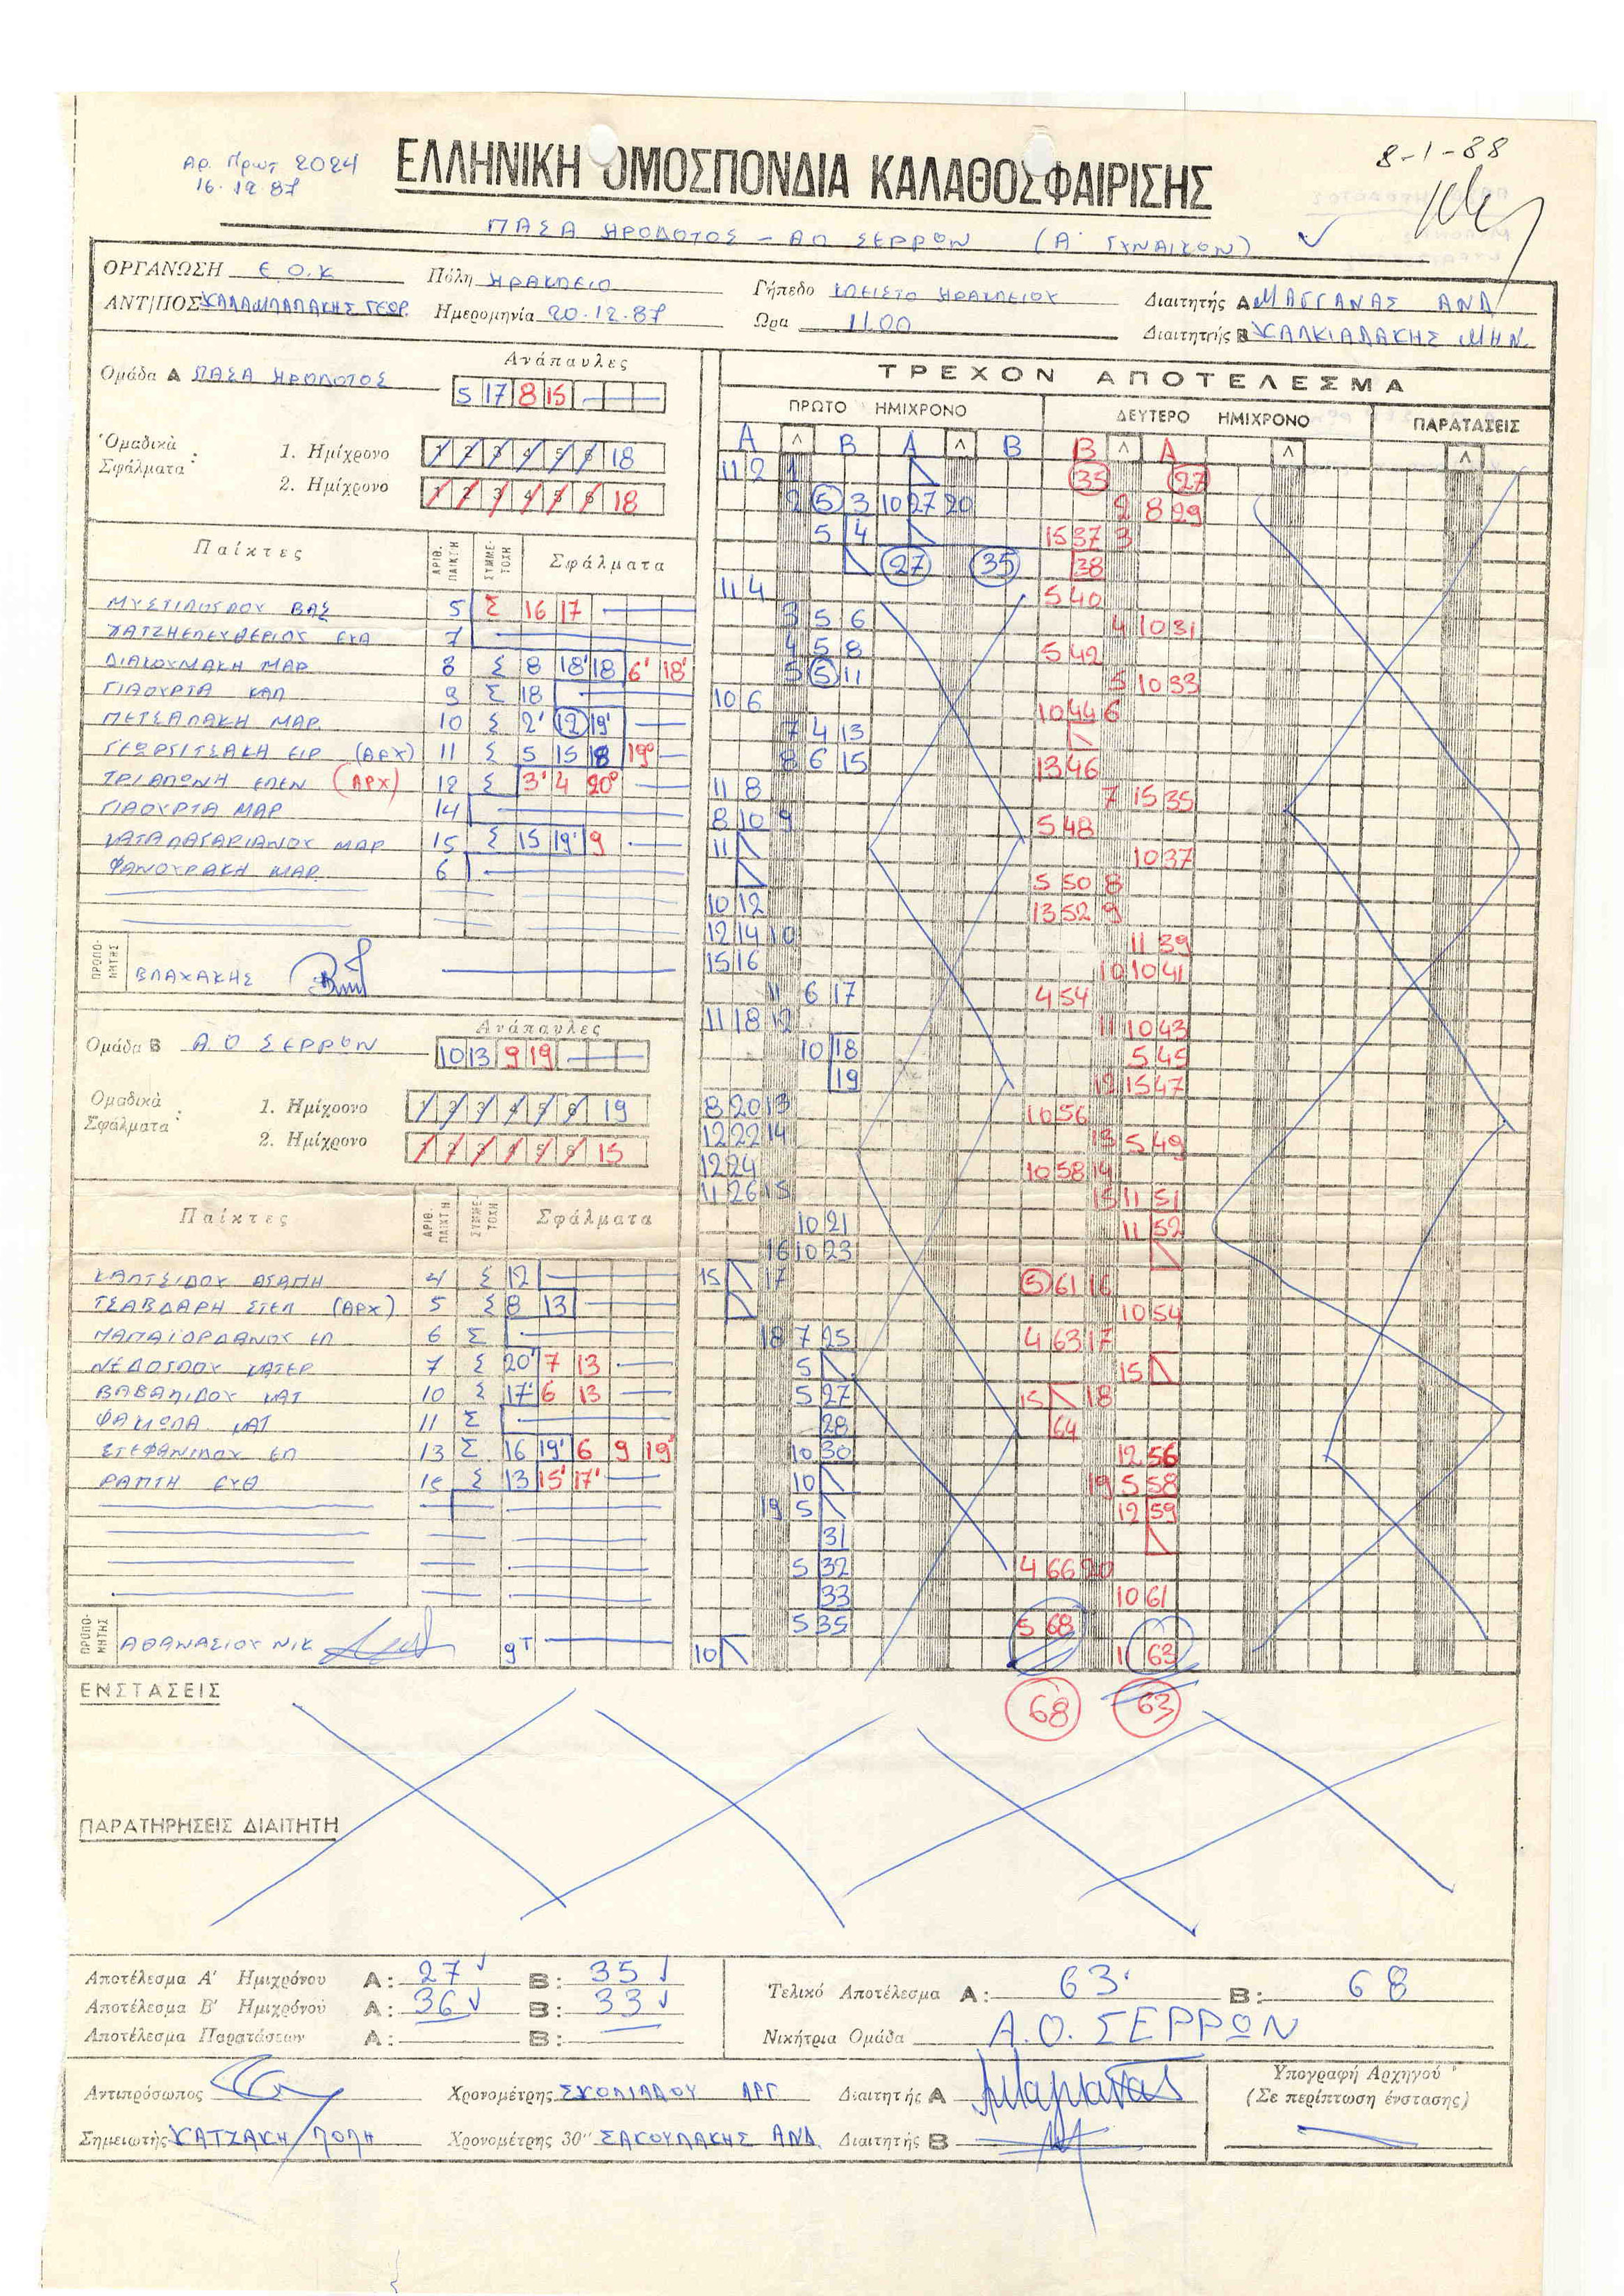 Αρ. Πρωτ 2024
16.12.87
8-1-88
ΕΛΛΗΝΙΚΗ ΟΜΟΣΠΟΝΔΙΑ ΚΑΛΑΘΟΣΦΑΙΡΙΣΗΣ
ΠΑΣΑ ΗΡΟΔΟΤΟΣ - ΑΟ ΣΕΡΡΩΝ (Α' ΓΥΝΑΙΚΩΝ)
ΟΡΓΑΝΩΣΗ Ε.Ο.Κ Πόλη ΗΡΑΚΛΕΙΟ Γήπεδο ΚΛΕΙΣΤΟ ΗΡΑΚΛΕΙΟΥ Διαιτητής Α ΜΑΓΓΑΝΑΣ ΑΝΔ
ΑΝΤ/ΠΟΣ ΚΑΛΑΜΠΑΛΑΚΗΣ ΓΕΩΡ. Ημερομηνία 20.12.87 Ώρα 11.00 Διαιτητής Β ΧΑΛΚΙΑΔΑΚΗΣ ΜΗΝ.
Ομάδα Α ΠΑΣΑ ΗΡΟΔΟΤΟΣ
Ανάπαυλες
5 17 8 15
Ομαδικά Σφάλματα :
1. Ημίχρονο 1 2 3 4 5 6 18
2. Ημίχρονο 1 2 3 4 5 6 18
ΤΡΕΧΟΝ ΑΠΟΤΕΛΕΣΜΑ
ΠΡΩΤΟ ΗΜΙΧΡΟΝΟ ΔΕΥΤΕΡΟ ΗΜΙΧΡΟΝΟ ΠΑΡΑΤΑΣΕΙΣ
Α Λ Β Α Λ Β Β Λ Α Λ Λ
Παίκτες ΑΡΙΘ. ΠΑΙΚΤΗ ΣΥΜΜΕ-ΤΟΧΗ Σφάλματα
5 Σ 16 17
ΧΑΤΖΗΕΛΕΥΘΕΡΙΟΥ ΕΥΑ 7
ΔΙΑΚΟΥΜΑΚΗ ΜΑΡ 8 Σ 8 18' 18 6' 18'
ΓΙΑΟΥΡΤΑ ΚΑΛ 9 Σ 18
ΠΕΤΣΑΛΑΚΗ ΜΑΡ. 10 Σ 2' 12 19'
ΓΕΩΡΓΙΤΣΑΚΗ ΕΙΡ (ΑΡΧ) 11 Σ 5 15 18 19°
ΤΡΙΑΠΩΝΗ ΕΛΕΝ (ΑΡΧ) 12 Σ 3' 4 20°
ΓΙΑΟΥΡΤΑ ΜΑΡ 14
15 Σ 15 19' 9
ΦΑΝΟΥΡΑΚΗ ΜΑΡ. 6
ΠΡΟΠΟ-ΝΗΤΗΣ ΒΛΑΧΑΚΗΣ
Ομάδα Β Α.Ο ΣΕΡΡΩΝ
Ανάπαυλες
10 13 9 19
Ομαδικά Σφάλματα :
1. Ημίχρονο 1 2 3 4 5 6 19
2. Ημίχρονο 1 2 3 4 5 6 15
Παίκτες ΑΡΙΘ. ΠΑΙΚΤΗ ΣΥΜΜΕ-ΤΟΧΗ Σφάλματα
ΚΑΛΤΣΙΔΟΥ ΑΓΑΠΗ 4 Σ 12
ΤΣΑΒΔΑΡΗ ΣΤΕΛ (ΑΡΧ) 5 Σ 8 13
ΠΑΠΑΪΟΡΔΑΝΟΥ ΕΛ 6 Σ
ΝΕΔΟΓΛΟΥ ΚΑΤΕΡ 7 Σ 20' 7 13
ΒΑΒΑΛΙΔΟΥ ΚΑΤ 10 Σ 17' 6 13
ΚΑΤ 11 Σ
ΣΤΕΦΑΝΙΔΟΥ ΕΛ 13 Σ 16 19' 6 9 19'
ΡΑΠΤΗ ΕΥΘ 15 Σ 13 15' 17'
ΠΡΟΠΟ-ΝΗΤΗΣ ΑΘΑΝΑΣΙΟΥ ΝΙΚ 9Τ
11 2 1
2 5 3 10 27 20
5 4
27 35
11 4
3 5 6
4 5 8
5 5 11
10 6
7 4 13
8 6 15
11 8
8 10 9
11
10 12
12 14 10
15 16
11 6 17
11 18 12
10 18
19
8 20 13
12 22 14
12 24
11 26 15
10 21
16 10 23
15 17
18 7 25
5
5 27
28
10 30
10
19 5
31
5 32
33
5 35
10
35 27
2 8 29
15 37 3
38
5 40
4 10 31
5 42
5 10 33
10 44 6
13 46
7 15 35
5 48
10 37
5 50 8
13 52 9
11 39
10 10 41
4 54
11 10 43
5 45
12 15 47
10 56
13 5 49
10 58 14
15 11 51
11 52
5 61 16
10 54
4 63 17
15
15 18
64
12 56
19 5 58
12 59
4 66 20
10 61
5 68
11 63
68 63
ΕΝΣΤΑΣΕΙΣ
ΠΑΡΑΤΗΡΗΣΕΙΣ ΔΙΑΙΤΗΤΗ
Αποτέλεσμα Α' Ημιχρόνου Α: 27 Β: 35
Αποτέλεσμα Β' Ημιχρόνου Α: 36 Β: 33
Αποτέλεσμα Παρατάσεων Α: Β:
Τελικό Αποτέλεσμα Α: 63 Β: 68
Νικήτρια Ομάδα Α.Ο. ΣΕΡΡΩΝ
Αντιπρόσωπος Χρονομέτρης ΣΚΟΛΙΑΔΟΥ ΑΡΓ Διαιτητής Α
Σημειωτής ΧΑΤΖΑΚΗ ΠΟΠΗ Χρονομέτρης 30'' ΣΑΚΟΥΛΑΚΗΣ ΑΝΔ Διαιτητής Β
Υπογραφή Αρχηγού
(Σε περίπτωση ένστασης)